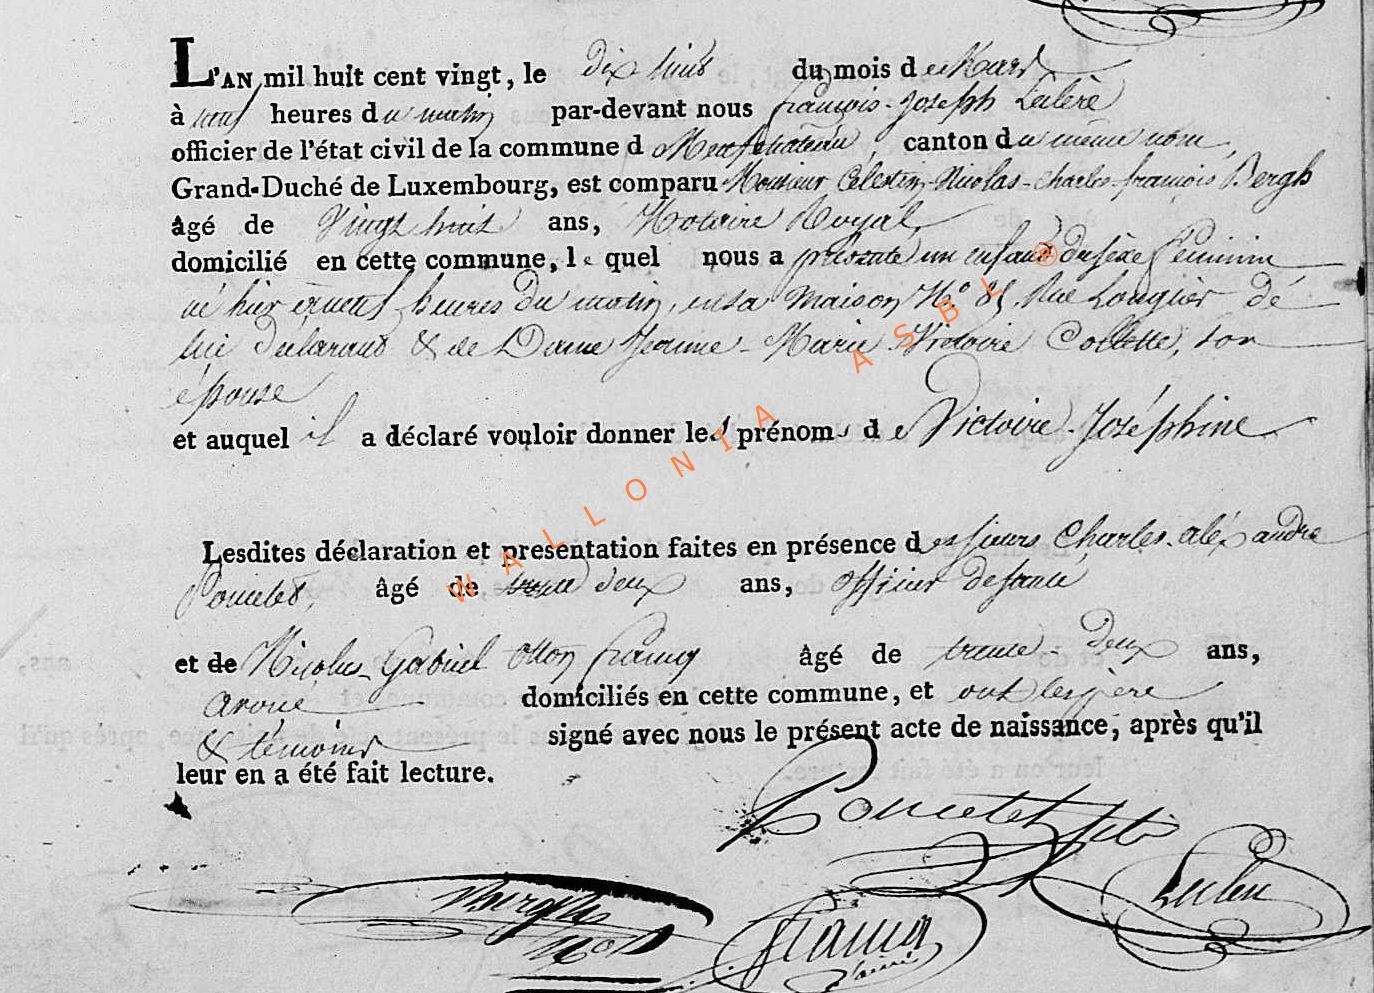 L'AN mil huit cent vingt, le dix huit du mois de Mars
à neuf heures du matin par-devant nous françois-Joseph Leclère
officier de l'état civil de la commune d Neufchateau canton du même nom,
Grand-Duché de Luxembourg, est comparu Monsieur Célestin-Nicolas-Charles-françois Bergh
âgé de Vingt huit ans, Notaire Royal,
domicilié en cette commune, le quel nous a présenté un enfant du sexe féminin
né hier à neuf heures du matin, en sa maison N.º 85. Rue Longuier de
lui déclarant & de Dame Jeanne-Marie-Victoire Collette, son
épouse
et auquel il a déclaré vouloir donner les prénoms de Victoire-Joséphine
Lesdites déclaration et presentation faites en présence des sieurs Charles-aléxandre
Poncelet, âgé de trente deux ans, officier de santé
et de Nicolas-Gabriel otton francq âgé de trente-deux ans,
avoué domiciliés en cette commune, et ont les père
& témoins signé avec nous le présent acte de naissance, après qu'il
leur en a été fait lecture.
Poncelet
Bergh
Not
francq
Leclère
WALLONIA ASBL ®